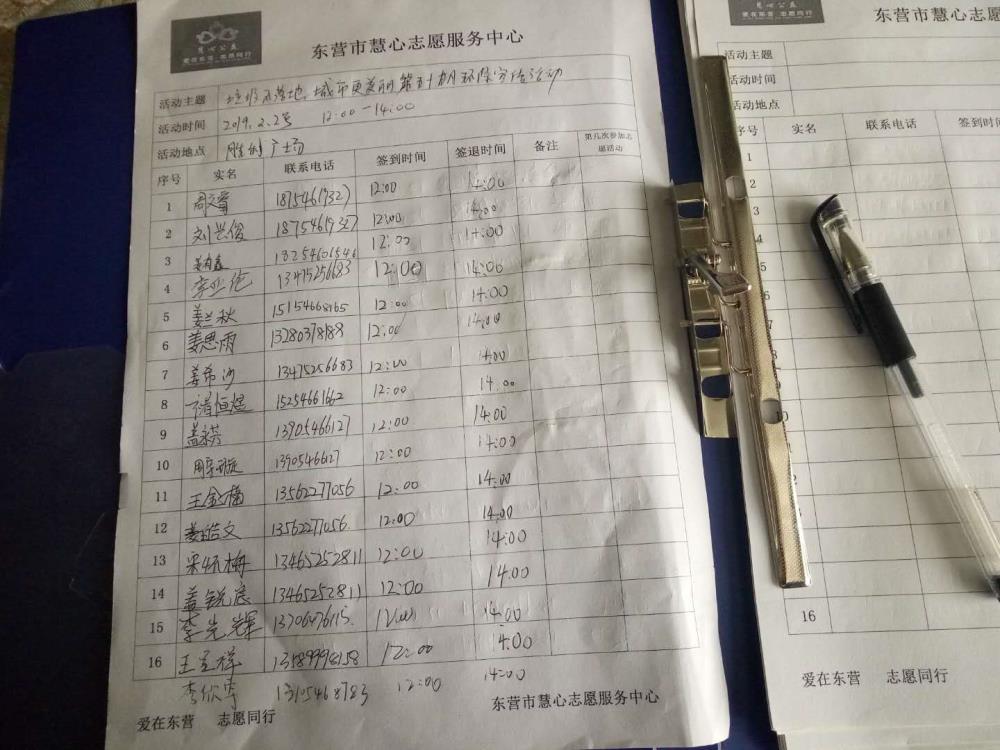 慧心公益
爱在东营 志愿同行
东营市慧心志愿服务中心
活动主题 垃圾不落地，城市更美丽第五十九期环保宣传活动
活动时间 2019.2.2号 12:00—14:00
活动地点 胜利广场
序号 实名 联系电话 签到时间 签退时间 备注 第几次参加志愿活动
1 18754619327 12:00 14:00
2 刘兴俊 18754619327 12:00 14:00
3 13254601546 12:00 14:00
4 李亚伦 13475256683 12:00 14:00
5 姜兰秋 15154668165 12:00 14:00
6 姜思雨 13280378188 12:00 14:00
7 姜希汐 13475256683 12:00 14:00
8 15254661662 12:00 14:00
9 盖祺 13905466127 12:00 14:00
10 13905466127 12:00 14:00
11 王金梅 13562277056 12:00 14:00
12 姜皓文 13562277056 12:00 14:00
13 宋怀梅 13465252811 12:00 14:00
14 盖锐宸 13465252811 12:00 14:00
15 李光辉 12:00 14:00
16 王呈祥 12:00 14:00
李欣 12:00 14:00
爱在东营 志愿同行 东营市慧心志愿服务中心
慧心公益
爱在东营 志愿同行
东营市慧心志愿
活动主题
活动时间
活动地点
序号 实名 联系电话 签到时
1
2
3
4
5
6
7
8
10
16
爱在东营 志愿同行